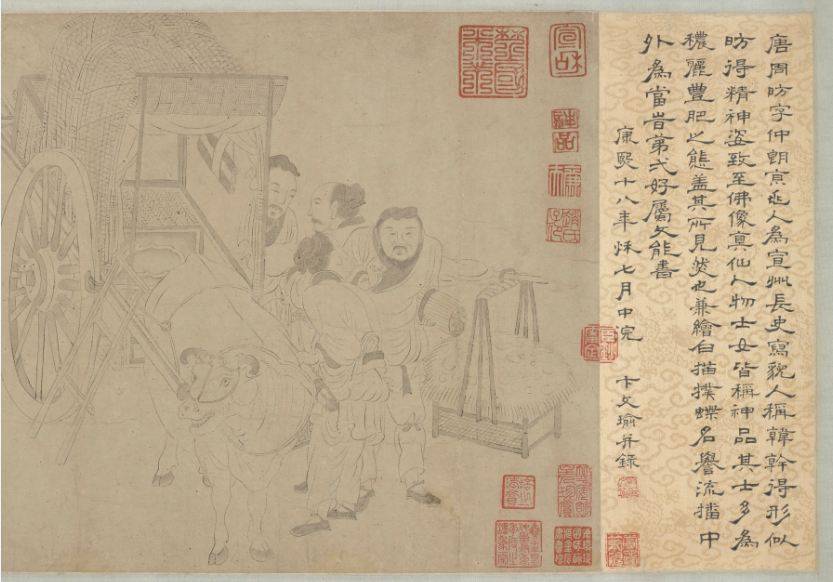 唐周昉字仲朗京兆人為宣州長史寫貌人稱韓幹得形似
昉得精神姿致至佛像真仙人物士女皆稱神品其士多為
穠麗豐肥之態蓋其所見然也兼繪白描撲蝶名譽流播中
外為當旹第弌好屬文能書
康熙十八年秋七月中浣 卞文瑜并錄
宣和
神品